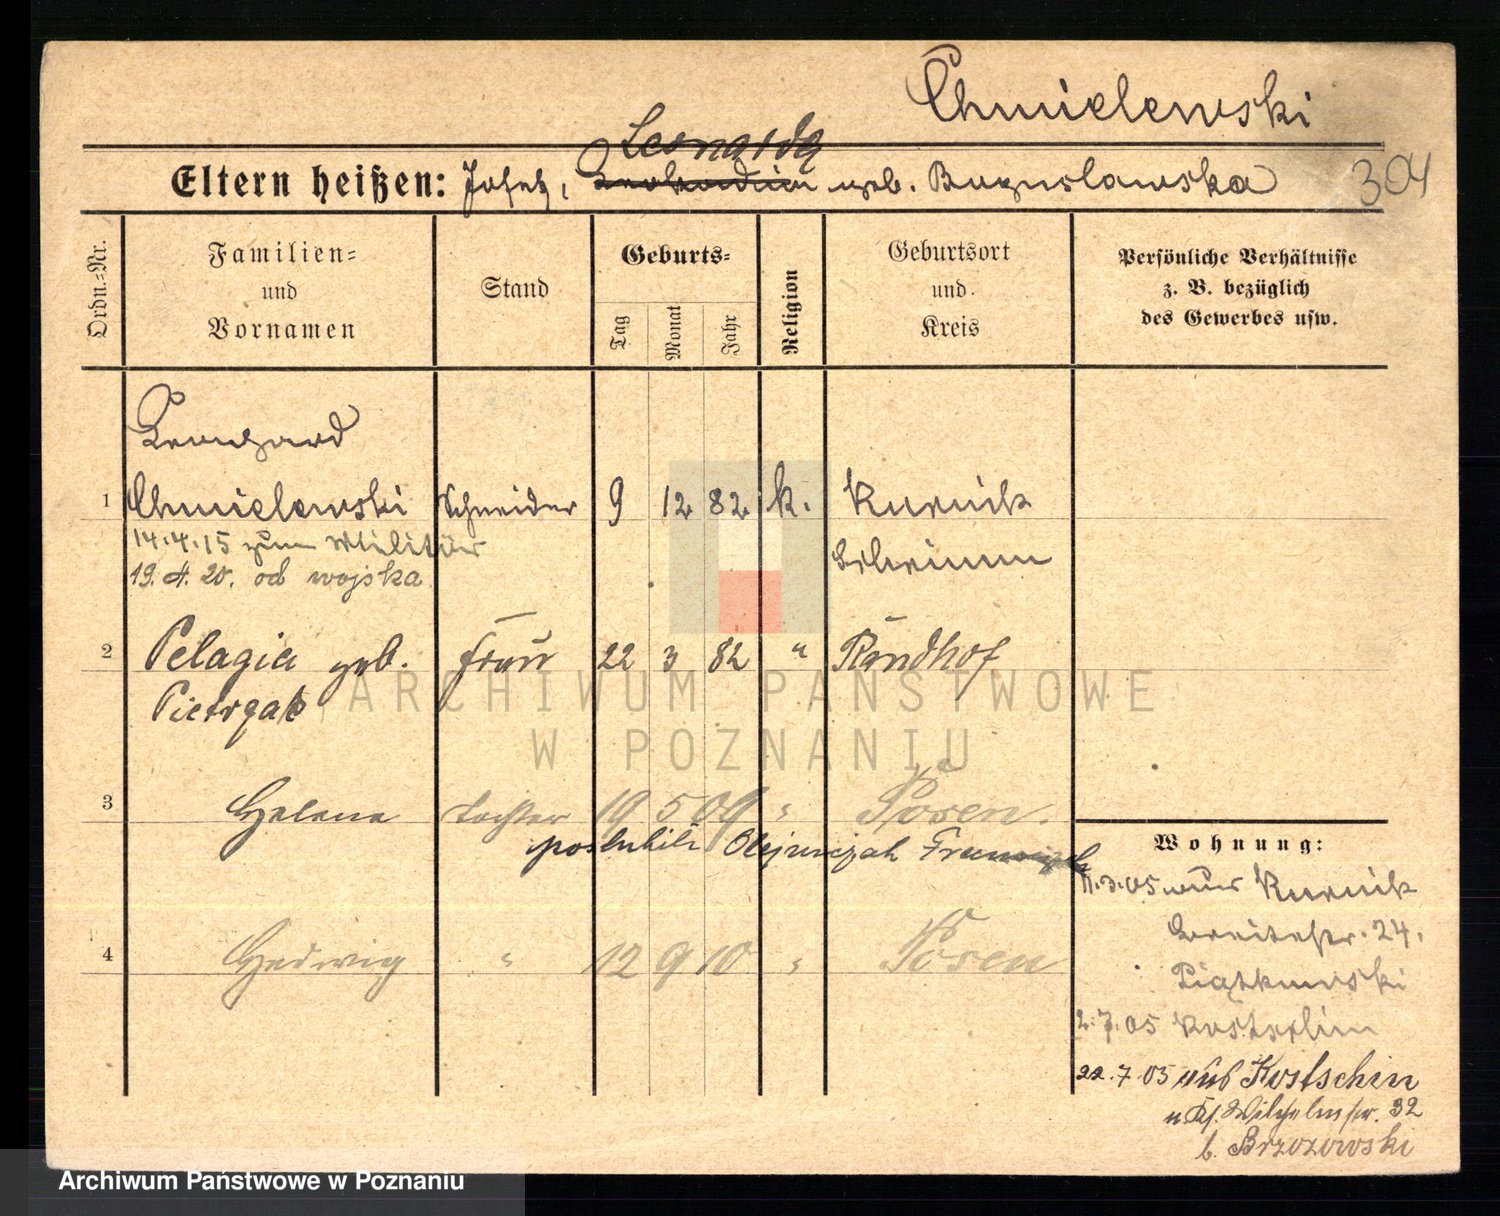 Chmielewski
Leonarda
Eltern heißen: Josef, geb. Boguslawska
304
Ordn.-Nr.
Familien-
und
Vornamen
Stand
Geburts-
Tag
Monat
Jahr
Religion
Geburtsort
und
Kreis
Persönliche Verhältnisse
z. B. bezüglich
des Gewerbes usw.
Leonhard
1 Chmielewski Schneider 9 12 82 k. Kurnik
14.4.15 zum Militär Schrimm
19.4.20. od wojska
2 Pelagia geb. Frau 22 3 82 " Rändhof
Pietrzak
3 Helene Tochter 19 5 09 " Posen.
poslubiła Olejniczak
4 Hedwig " 12 9 10 " Posen
Wohnung:
11.3.05 aus Kurnik
Breitestr. 24.
Piątkowski
2.7.05 Kostschin
22.7.05 aus Kostschin
n. Kl. Wilhelmstr. 32
b. Brzozowski
ARCHIWUM PAŃSTWOWE
W POZNANIU
Archiwum Państwowe w Poznaniu